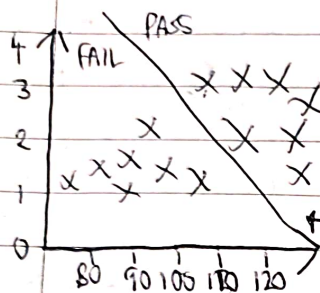 PASS
4
FAIL
3
2
1
0
80 90 100 110 120